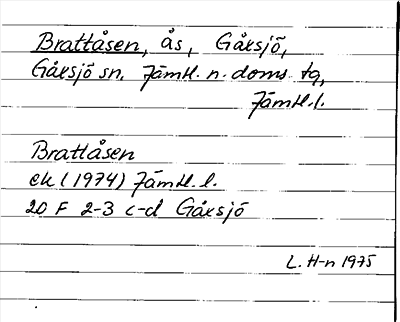 Brattåsen, ås, Gåxsjö,
Gåxsjö sn. Jämtl. n. doms. tg,
Jämtl. l.
Brattåsen
ek (1974) Jämtl. l.
20 F 2-3 c-d Gåxsjö
L. H-n 1975